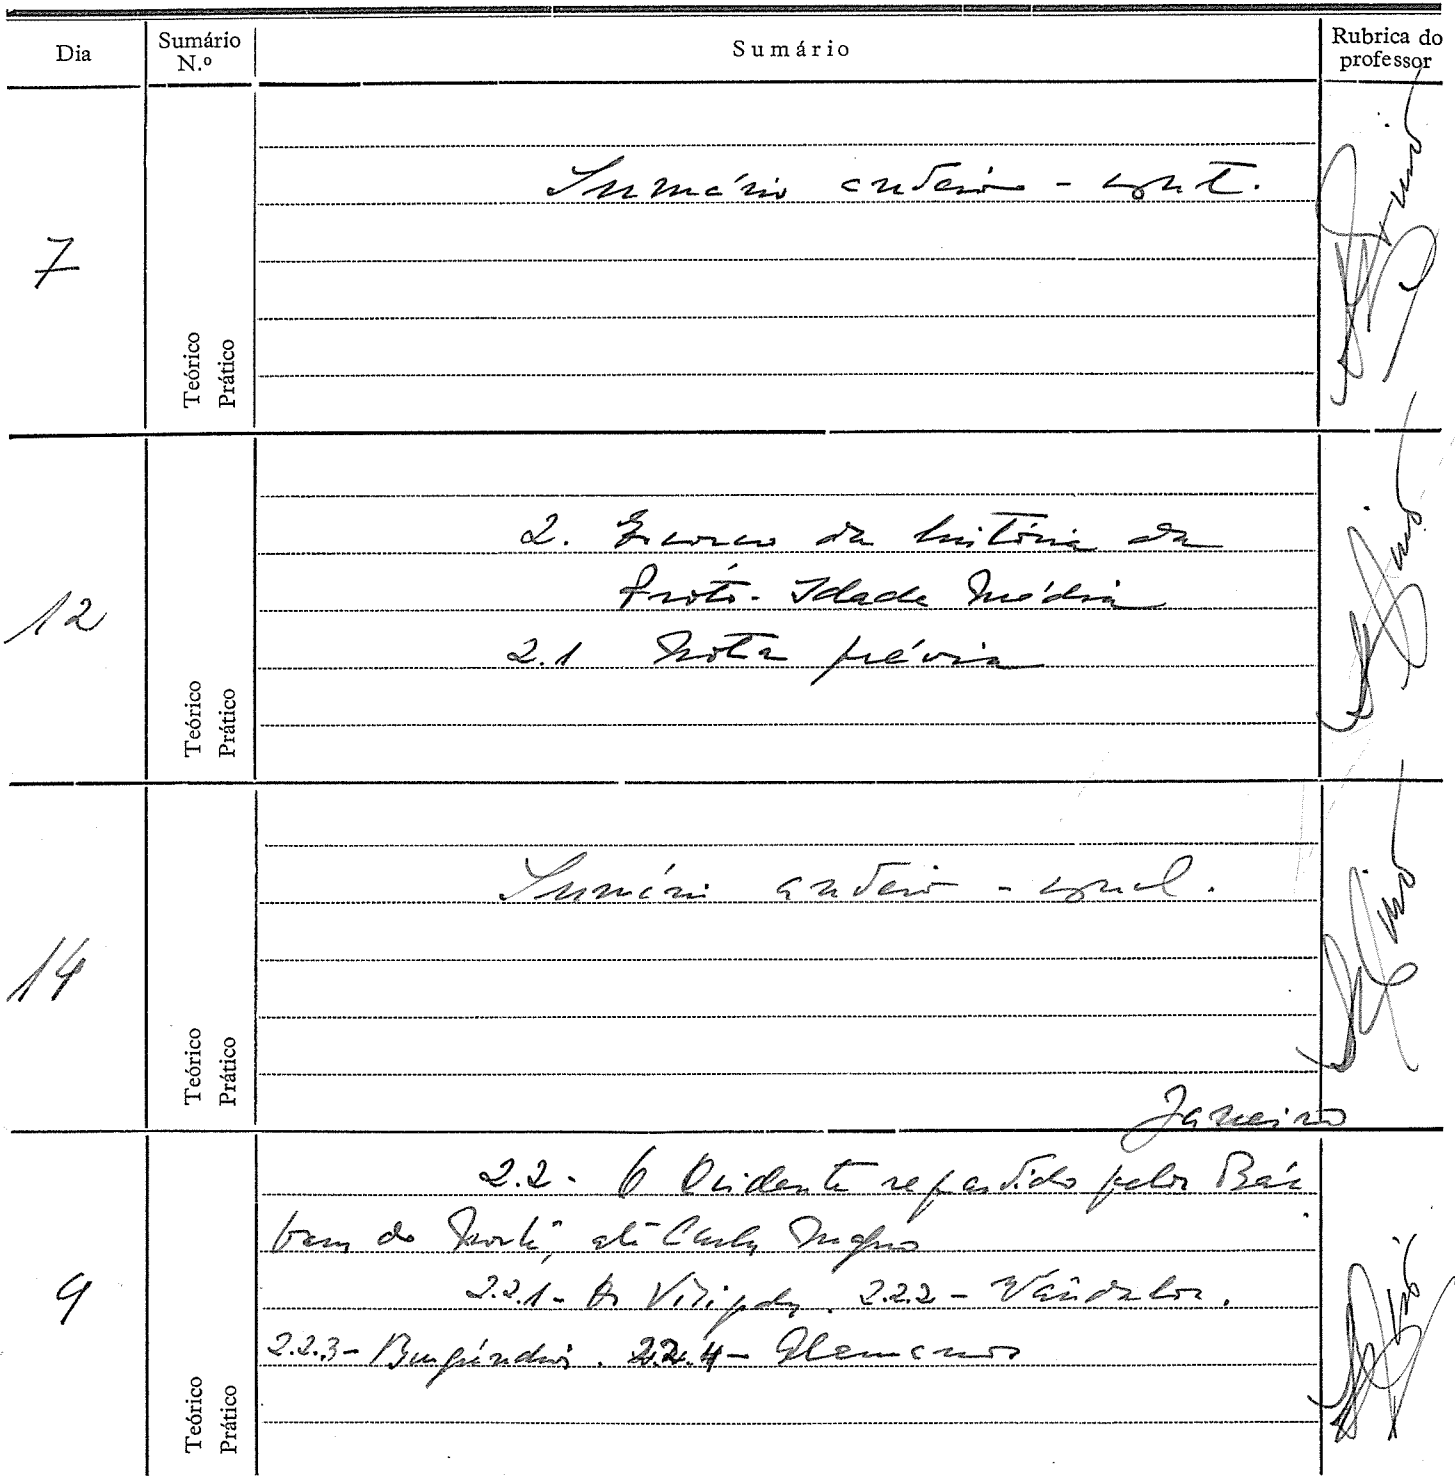 Dia
Sumário N.º
Sumário
Rubrica do professor
7
Teórico
Prático
Sumário anterior - cont.
12
Teórico
Prático
2. Escorço da história da
Proto-Idade Média
2.1 Nota prévia
14
Teórico
Prático
Sumário anterior - concl.
Janeiro
9
Teórico
Prático
2.2 - O Ocidente repartido pelos Bár
baros do Norte, até Carlos Magno
2.2.1 - Os Visigodos. 2.2.2 - Vândalos.
2.2.3 - Burgúndios. 2.2.4 - Alemanos